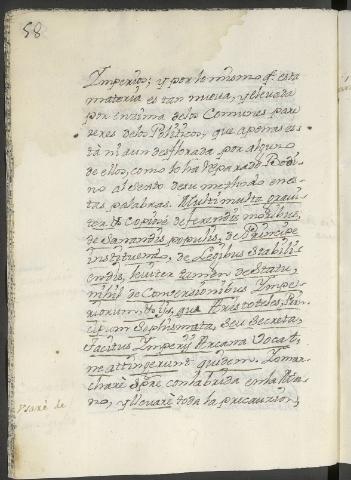 58
Imperios; y por lo mismo q̃. esta
materia es tan nueva, y elevada
por encima de los Comunes pare
zeres de los Politicos, que apenas es
tà ni aun desflorada por alguno
de ellos, como lo ha reparado Bodi
no al Sexto de su methodo en es-
tas palabras. Multi multa gravi
ter & copiose de ferendis moribus,
de Sanandis populis, de Principe
instituendo, de Legibus Stabili
endis, leviter tamen de Statu,
nihil de Conversionibus Imper
iorum,
que Aristoteles, Prin
cipum Sophismata, seu Secreta,
Tacitus Imperij Arcana Vocat,
ne attingerunt quidem.
charè Spre con la brida en la Ma-
no, y llevarè toda la precaucion,
Usarè de